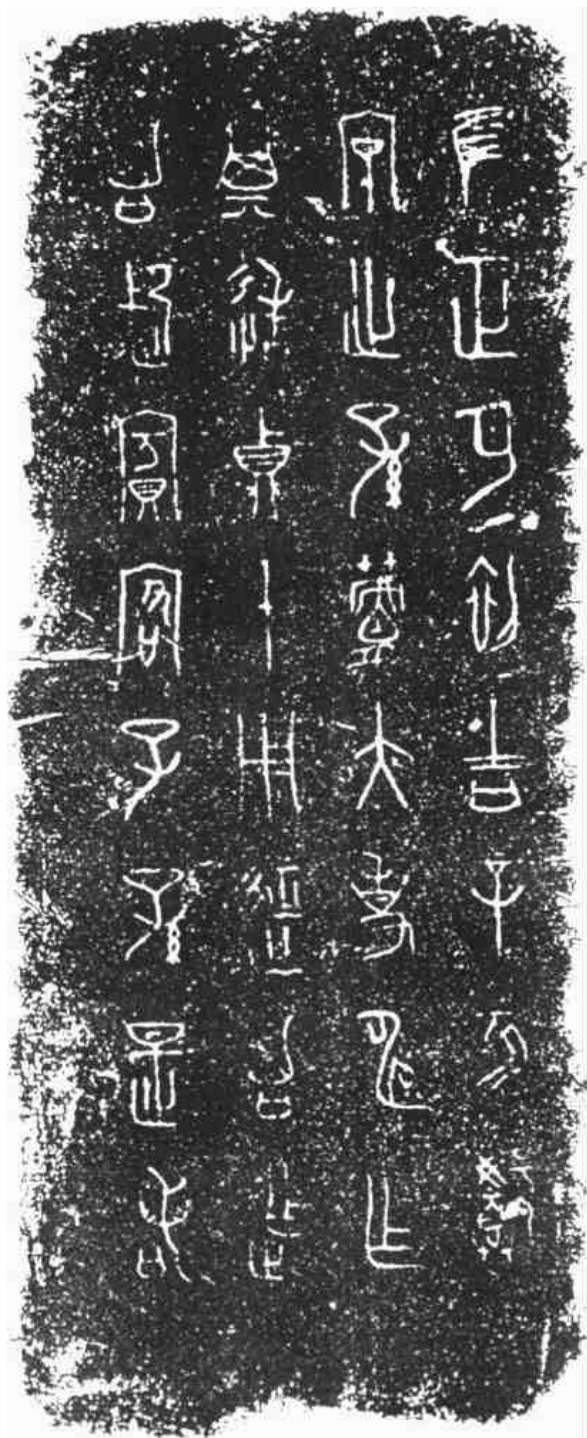 隹正月初吉辛亥鄦
安之孫簷大史申乍
其造鼎十用征台迮
台御賓客子孫是若